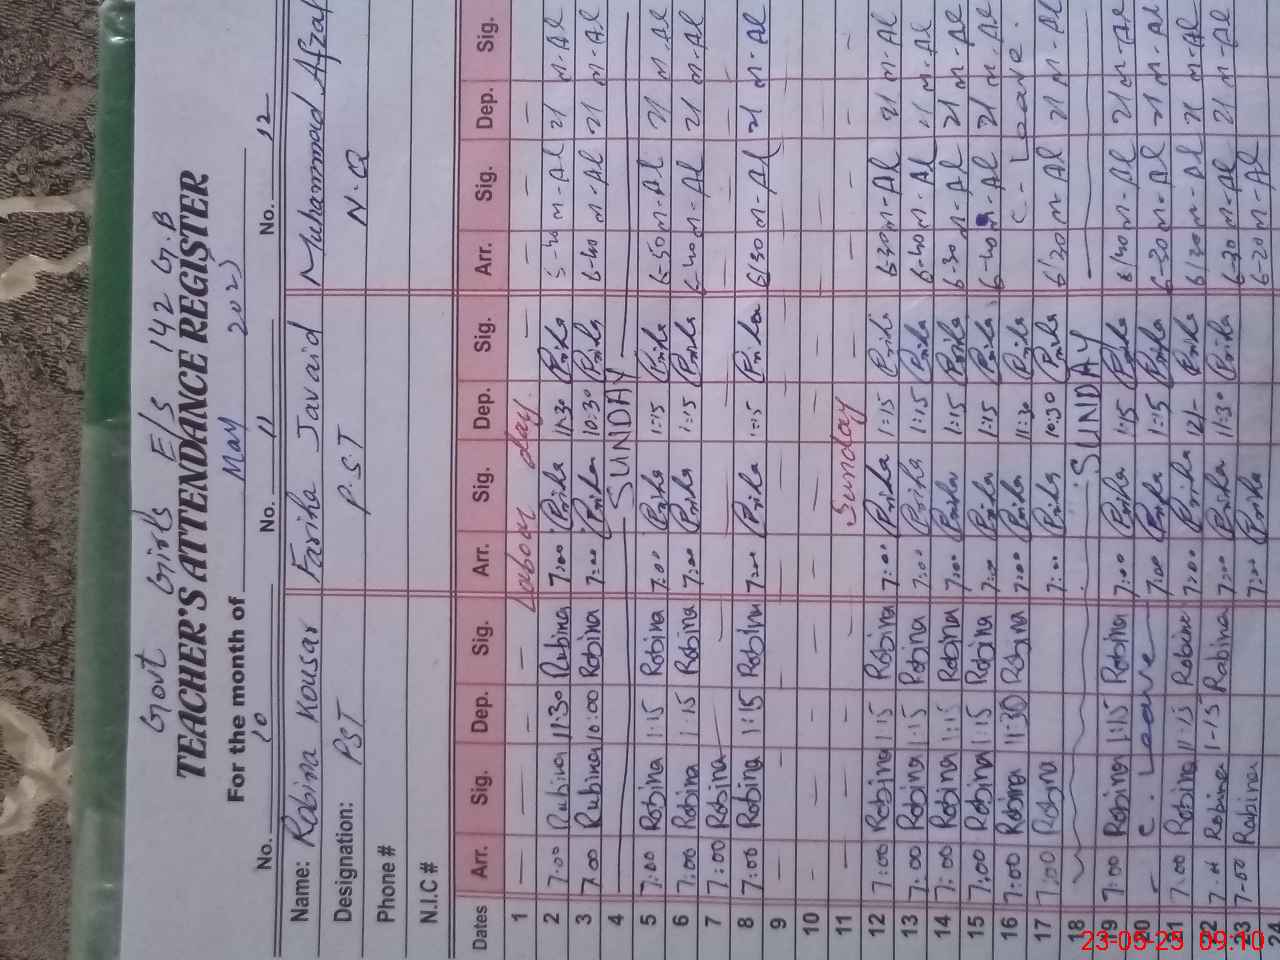 Govt Girls E/S 142 G.B
TEACHER'S ATTENDANCE REGISTER
For the month of May
No. 10 No. 11 No. 12
Name: Robina Kousar Fariha Javaid Muhammad Afzal
Designation: PST P.S.T N.Q
Phone #
N.I.C #
Dates Arr. Sig. Dep. Sig. Arr. Sig. Dep. Sig. Arr. Sig. Dep. Sig.
1 — — — Labour day — — — —
2 7:00 Rubina 11:30 Rubina 7:00 11:30 m-Al 21 m-Al
3 7:00 Rubina 10:00 Robina 7:00 10:30 6-40 m-Al 21 m-Al
4 SUNDAY
5 7:00 Robina 1:15 Robina 7:00 1:15 6-50 m-Al 21 m-Al
6 7:00 Robina 1:15 Robina 7:00 1:15 6-40 m-Al 21 m-Al
7 7:00 Robina —
8 7:00 Robina 1:15 Robina 7:00 1:15 6/30 m-Al 21 m-Al
9 — — — — — —
10 — — — — — —
11 — — — Sunday — — — —
12 7:00 Robina 1:15 Robina 7:00 1:15 6-30 m-Al 21 m-Al
13 7:00 Robina 1:15 Robina 7:00 1:15 6-40 m-Al 21 m-Al
14 7:00 Robina 1:15 Robina 7:00 1:15 6-30 m-Al 21 m-Al
15 7:00 Robina 1:15 Robina 7:00 1:15 6-40 m-Al 21 m-Al
16 7:00 Robina 11:30 Robina 7:00 11:30 C-Leave
17 7:00 Robina 7:00 10:30 6/30 m-Al 21 m-Al
18 SUNDAY
19 7:00 Robina 1:15 Robina 7:00 1:15 6/30 m-Al 21 m-Al
20 C. Leave 7:00 1:15 6-30 m-Al 21 m-Al
21 7:00 Robina 11:15 Robina 7:00 12/- 6/30 m-Al 21 m-Al
22 Robina 1-15 Robina 7:00 11:30 6-30 m-Al 21 m-Al
23 7-00 Robina 7:00 6-20 m-Al
24
23-05-25 09:10